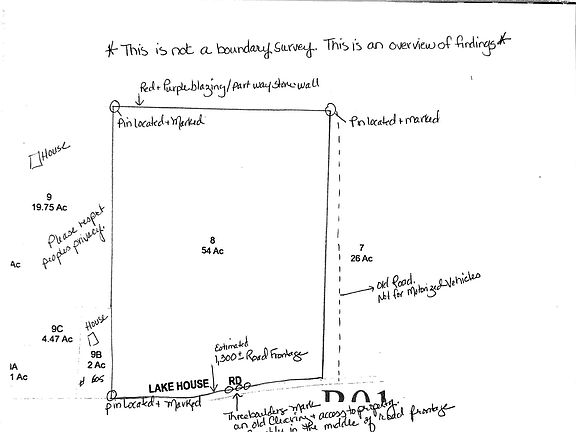 * This is not a boundary survey. This is an overview of findings *
Red + Purple blazing / part way stone wall
Pin located + Marked
Pin located + marked
House
9
19.75 Ac
Please respect
peoples privacy.
8
54 Ac
7
26 Ac
Ac
old Road.
Not for Motorized Vehicles
House
9C
4.47 Ac
9B
2 Ac
# 605
1A
1 Ac
Estimated
1,300 ± Road Frontage
LAKE HOUSE RD
pin located + marked
R01
Three boulders Mark
an old Clearing + access to property.
in the middle of road frontage